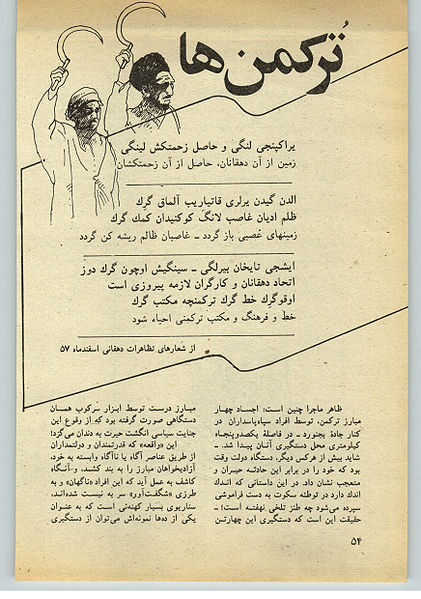 تُرکمن‌ها
یراکپنجی لنگی و حاصل زحمتکش لینگی
زمین از آن دهقانان، حاصل از آن زحمتکشان
الدن گیدن یرلری قاتباریب آلماق گرك
ظلم ادیان غاصب لانگ کوکنیدان کمك گرك
زمینهای غصبی باز گردد ــ غاصبان ظالم ریشه کن گردد
ایشجی تایخان بیرلگی ــ سینگیش اوچون گرك دوز
اتحاد دهقانان و کارگران لازمه پیروزی است
اوقوگرك خط گرك ترکمنچه مکتب گرك
خط و فرهنگ و مکتب ترکمنی احیاء شود
از شعارهای تظاهرات دهقانی اسفندماه ۵۷
ظاهر ماجرا چنین است: اجساد چهار
مبارز ترکمن، توسط افراد سپاه‌پاسداران در
کنار جادهٔ بجنورد ــ در فاصلهٔ یکصدوپنجاه
کیلومتری محل دستگیری آنان پیدا شد. ــ
شاید بیش از هرکس دیگر، دستگاه دولت وقت
بود که خود را در برابر این حادثه حیران و
متعجب نشان داد. در این داستانی که اندك
اندك دارد در توطئه سکوت به دست فراموشی
سپرده می‌شود چه طنز تلخی نهفته است! ــ
حقیقت این است که دستگیری این چهارتن
مبارز درست توسط ابزار سرکوب همان
دستگاهی صورت گرفته بود که از وقوع این
جنایت سیاسی انگشت حیرت به دندان می‌گزد!
این «واقعه» که قدرتمندان و دولتمداران
از طریق عناصر آگاه یا ناآگاه وابسته به خود،
آزادیخواهان مبارز را به بند کشند، و آنگاه
کاشف به عمل آید که این افراد «ناگهان» و به
طرزی «شگفت‌آور» سر به نیست شده‌اند،
سناریوی بسیار کهنه‌ئی است که به عنوان
یکی از ده‌ها نمونه‌اش می‌توان از دستگیری
۵۴